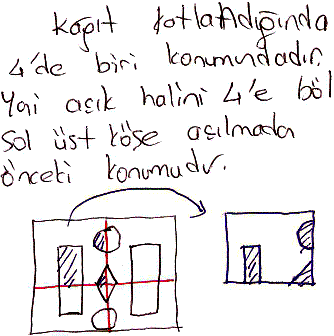 kağıt katlandığında
4'de biri konumundadır.
Yani açık halini 4'e böl
Sol üst köşe açılmada
önceki konumudur.